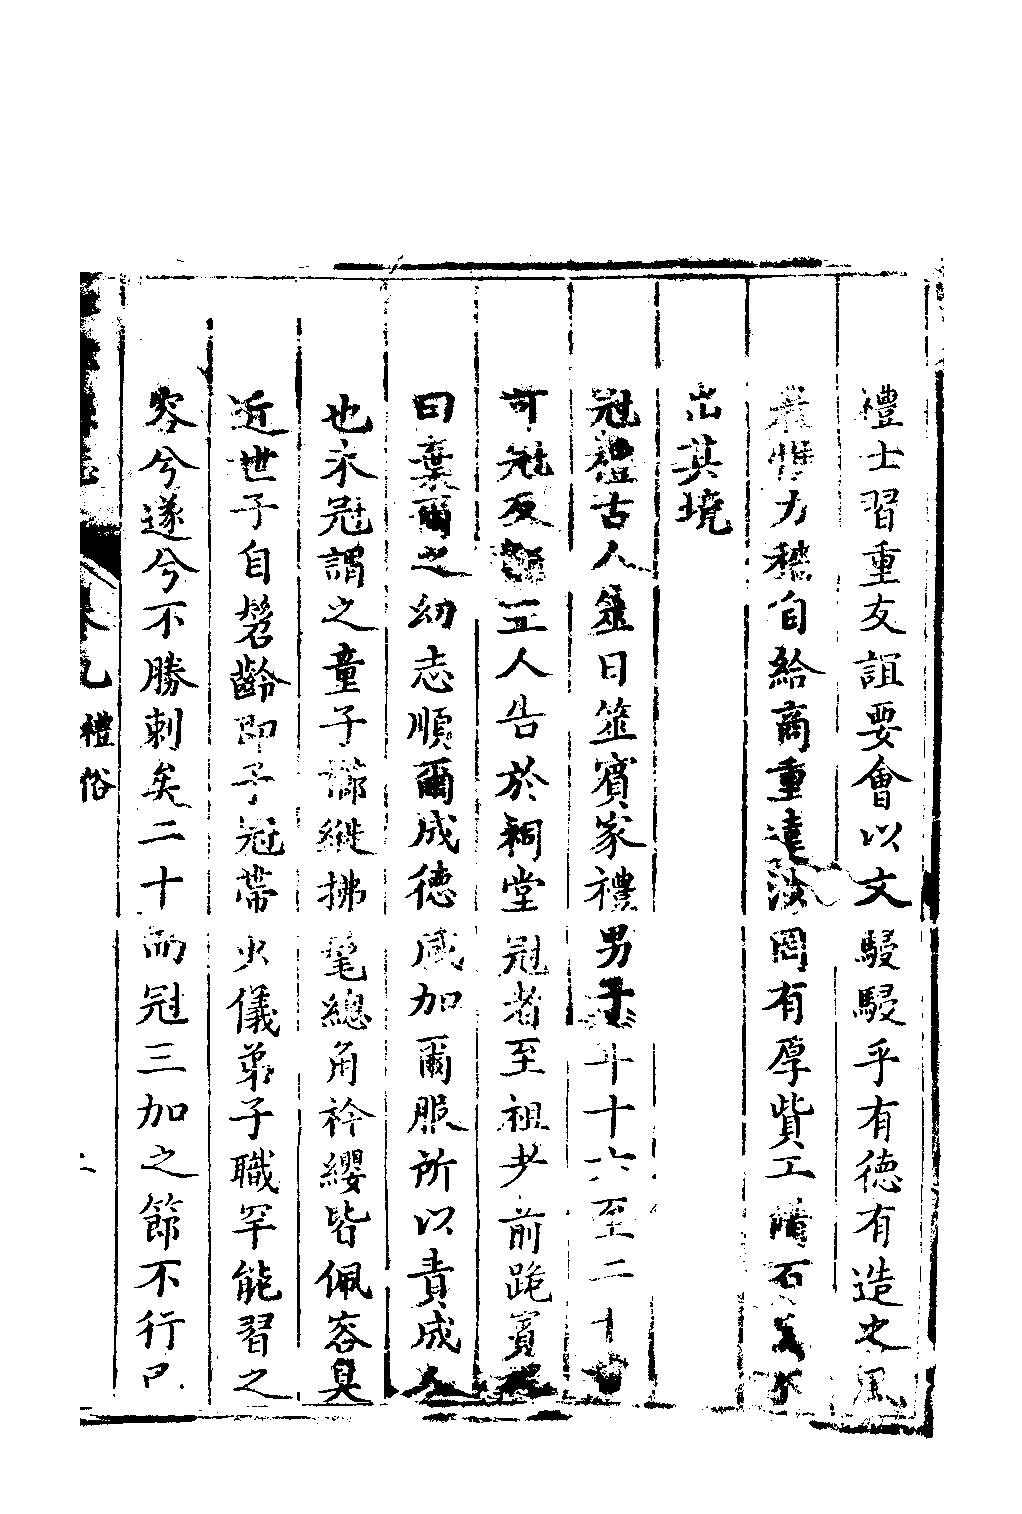 禮士習重友誼要會以文駸駸乎有德有造之風
農惟力穡自給商重達漁罔有厚貲工石
出其境
冠禮古人筮日筮賓家禮男子年十六至二十皆
可冠反正人告於祠堂冠者至祖考前跪賓
曰棄爾之幼志順爾成德咸加爾服所以責成人
也未冠謂之童子櫛縰拂髦總角衿纓皆佩容臭
近世子自髫齡即子冠帶火儀弟子職罕能習之
容兮遂兮不勝刺矣二十而冠三加之節不行已
志
卷九
禮俗